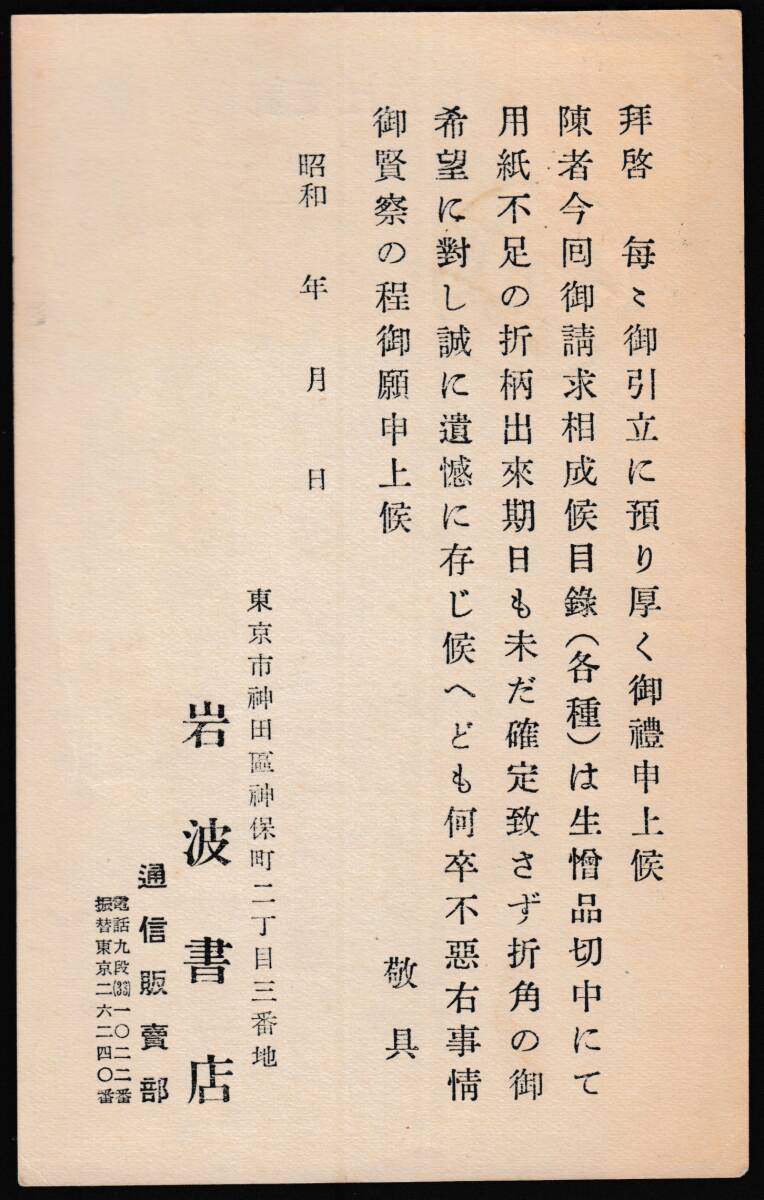 拜啓　每〻御引立に預り厚く御禮申上候
陳者今囘御請求相成候目錄（各種）は生憎品切中にて
用紙不足の折柄出來期日も未だ確定致さず折角の御
希望に對し誠に遺憾に存じ候へども何卒不惡右事情
御賢察の程御願申上候　敬具
昭和　年　月　日
東京市神田區神保町二丁目三番地
岩波書店
通信販賣部
電話九段(33)一〇二二番
振替東京二六二四〇番